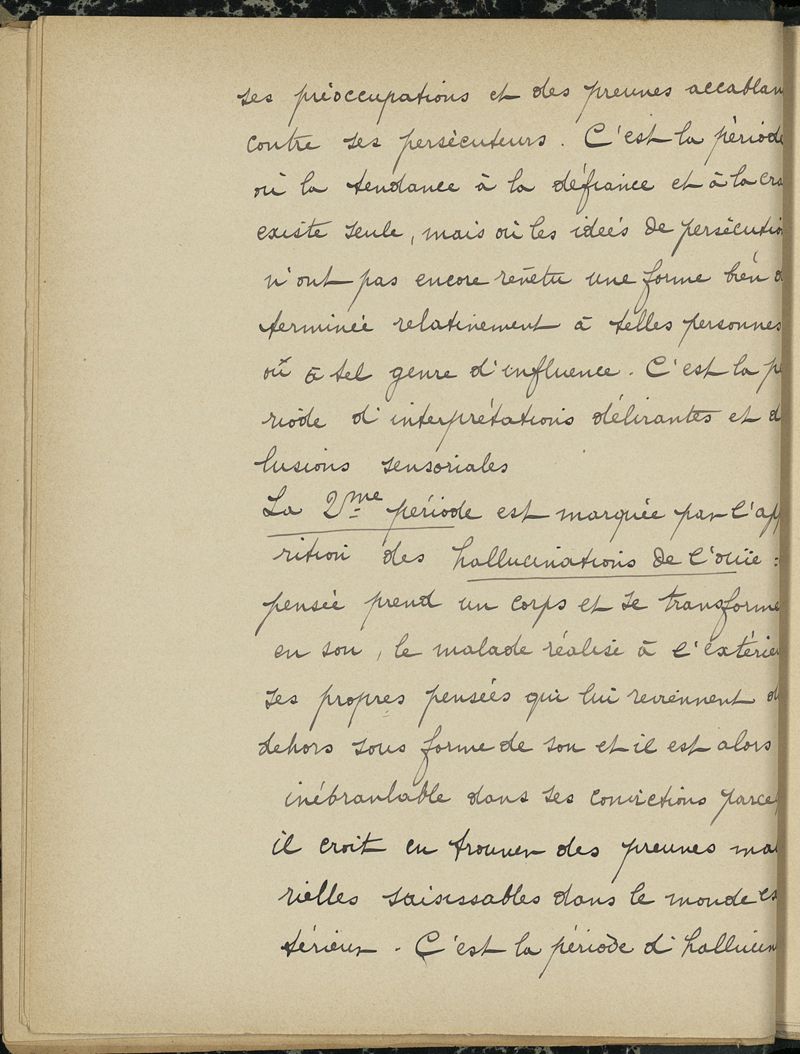 ses préoccupations et des preuves accablan
contre ses persécuteurs. C'est la période
où la tendance à la défiance et à la cra
existe seule, mais où les idées de persécutio
n'ont pas encore revêtu une forme bien d
terminée relativement à telles personnes
où à tel genre d'influence. C'est la pé
riode d'interprétations délirantes et d
lusions sensoriales
La 2me période est marquée par l'app
rition des hallucinations de l'ouïe :
pensée prend un corps et se transforme
en son, le malade réalise à l'extérieu
ses propres pensées qui lui reviennent d
dehors sous forme de son et il est alors
inébranlable dans ses convictions parce
il croit en trouver des preuves ma
rielles saisissables dans le monde ex
térieur. C'est la période d'hallucin